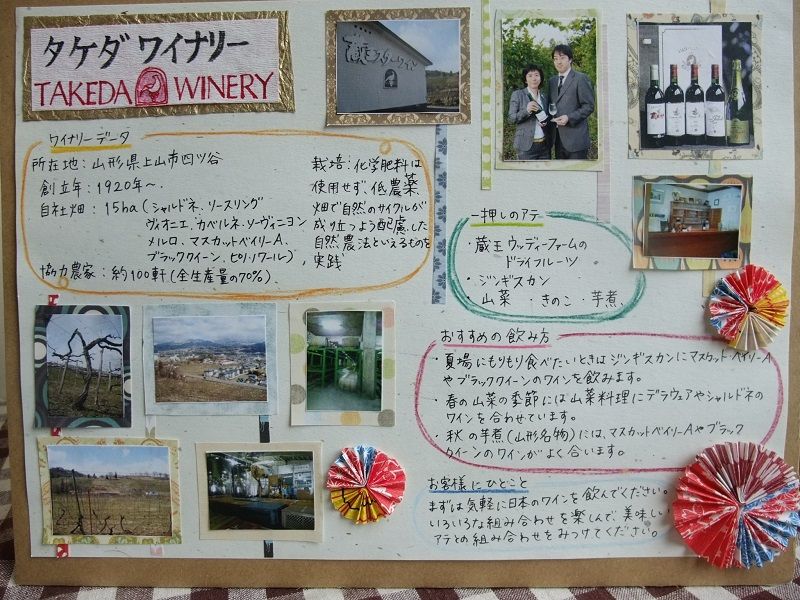 タケダワイナリー
TAKEDA WINERY
ワイナリーデータ
所在地：山形県上山市四ツ谷
創立年：1920年〜.
自社畑：15ha（シャルドネ、リースリング
ヴィオニエ、カベルネ・ソーヴィニヨン
メルロ、マスカットベイリーA、
ブラッククイーン、ピノ・ノワール）
協力農家：約100軒（全生産量の70%）
栽培：化学肥料は
使用せず、低農薬
畑で自然のサイクルが
成り立つよう配慮した
自然農法といえるものを
実践
一押しのアテ
・蔵王ウッディーファームの
ドライフルーツ
・ジンギスカン
・山菜 ・きのこ・芋煮
おすすめの飲み方
・夏場にもりもり食べたいときはジンギスカンにマスカット・ベイリーA
やブラッククイーンのワインを飲みます。
・春の山菜の季節には山菜料理にデラウェアやシャルドネの
ワインを合わせています。
・秋の芋煮（山形名物）には、マスカットベイリーAやブラック
クイーンのワインがよく合います。
お客様にひとこと
まずは気軽に日本のワインを飲んでください。
いろいろな組み合わせを楽しんで、美味しい
アテとの組み合わせをみつけてください。